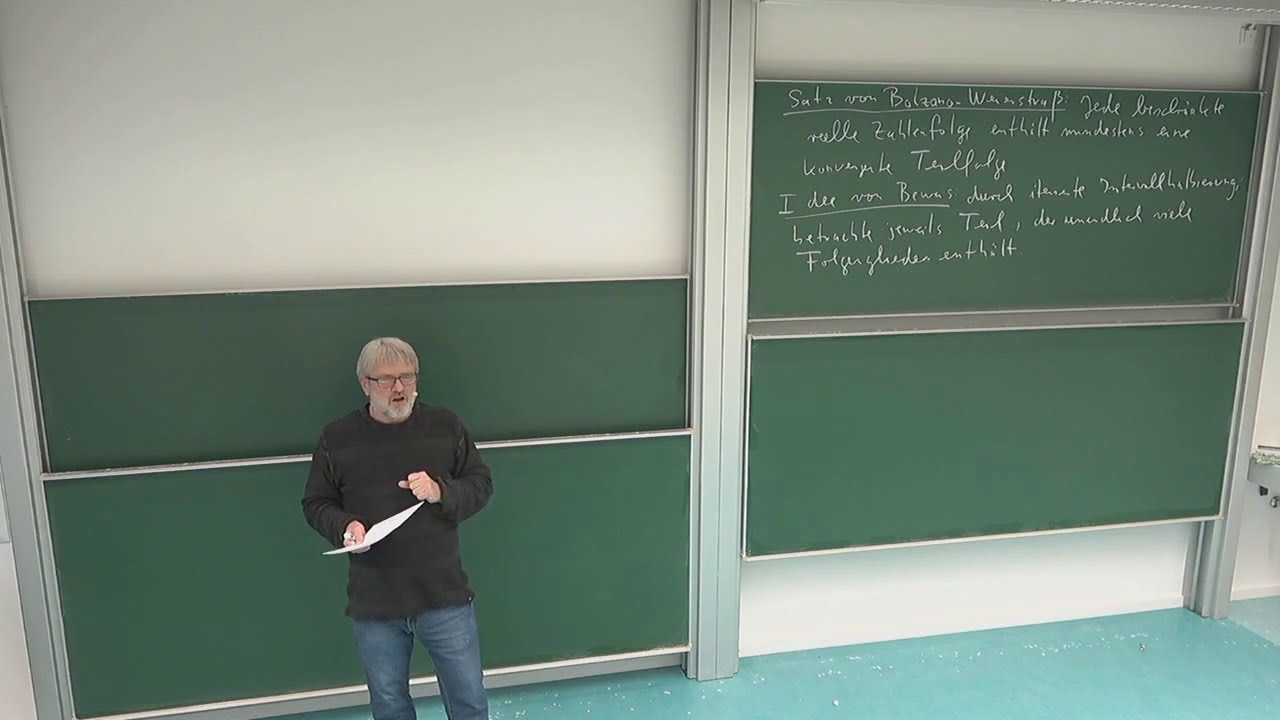 Satz von Bolzano-Weierstraß: Jede beschränkte
reelle Zahlenfolge enthält mindestens eine
konvergente Teilfolge
Idee von Beweis: durch iterierte Intervallhalbierung,
betrachte jeweils Teil, der unendlich viele
Folgenglieder enthält.